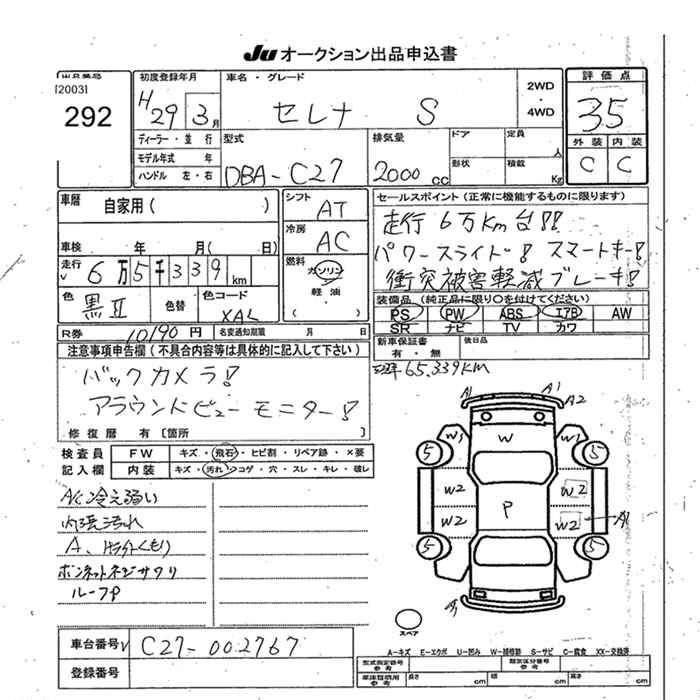 JU オークション出品申込書
出品番号
[2003]
292
初度登録年月
H29 3月
車名・グレード
セレナ S
2WD
・
4WD
評価点
3.5
ディーラー・並行
モデル年式 年
ハンドル 左・右
型式
DBA-C27
排気量
2000cc
ドア
形状
定員
人
積載
Kg
外装 内装
C C
車歴
自家用( )
車検 年 月( 日)
走行
6万5千339km
色
黒II
色替
色コード
KAL
R券 10190円 名変通知期限 月 日
シフト
AT
冷房
AC
燃料
ガソリン
・
軽油
( )
セールスポイント(正常に機能するものに限ります)
走行6万Km台!!
パワースライド! スマートキー!
衝突被害軽減ブレーキ!
装備品(純正品に限り○をはけてください)
PS PW ABS エアB AW
SR ナビ TV カワ
新車保証書
有・無
後日品
65,339KM
注意事項申告欄(不具合内容等は具体的に記入して下さい)
バックカメラ!
アラウンドビューモニター!
修復歴 有〔箇所 〕
検査員
記入欄
FW キズ・飛石・ヒビ割・リペア跡・×要
内装 キズ・汚れ・コゲ・穴・スレ・キレ・破レ
A/C冷え弱い
内張汚れ
A、ガラスくもり
ボンネットネジサワリ
ルーフP
A1 A1 A2
W1 W W1
5 5
W2 W2
P
W2 W2 A1
5 5
スペア
車台番号 C27-002767
登録番号
A-キズ E-エクボ U-凹み W-補修跡 S-サビ C-腐食 XX-交換済
型式指定番号
参考
類別区分番号
参考
車体証明用
参考
長さ cm 幅 cm 高さ cm